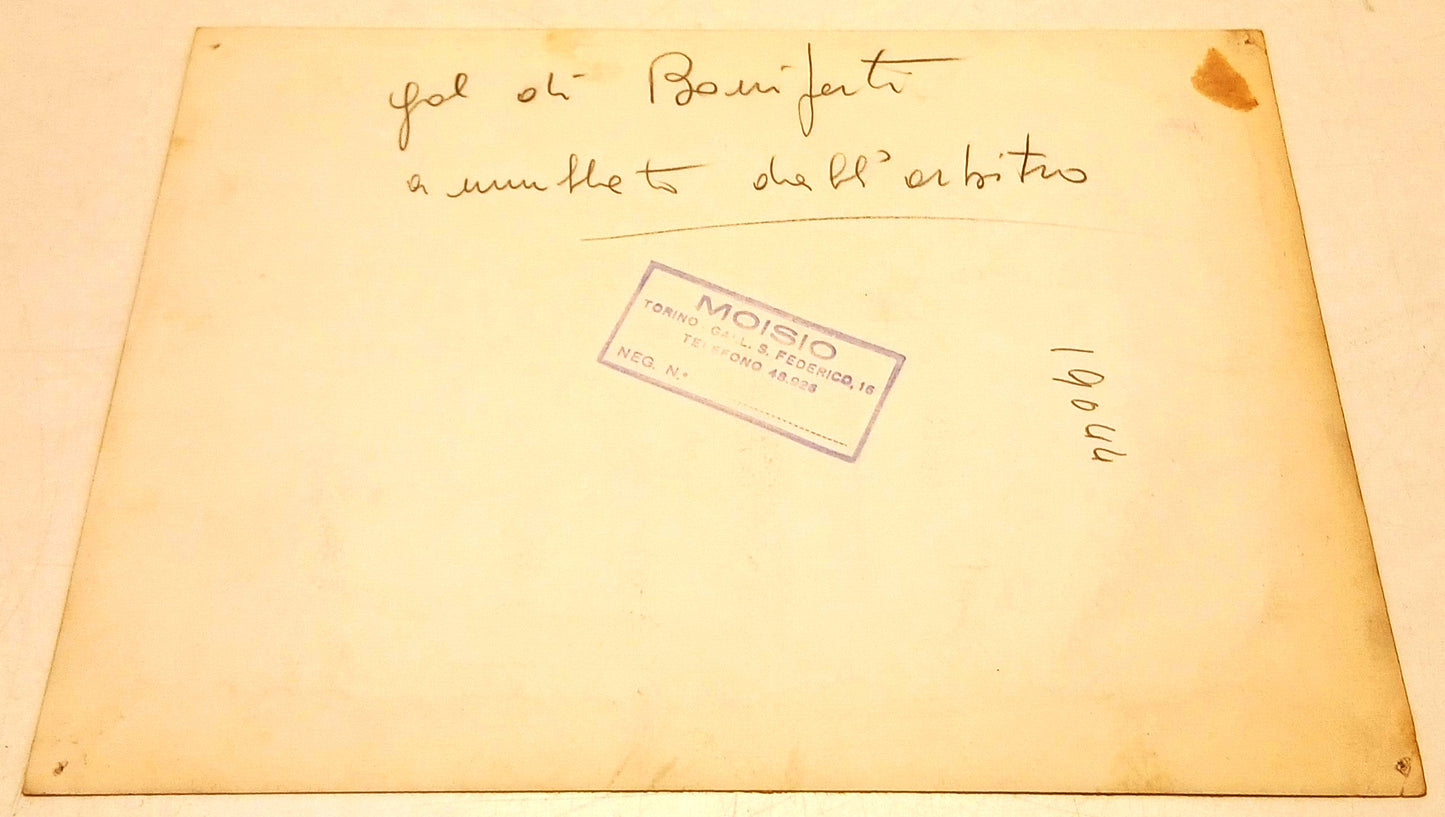 gol di Boniperti
annullato dall'arbitro
MOISIO
TORINO GALL. S. FEDERICO, 16
TELEFONO 48.926
NEG. N.°
19044